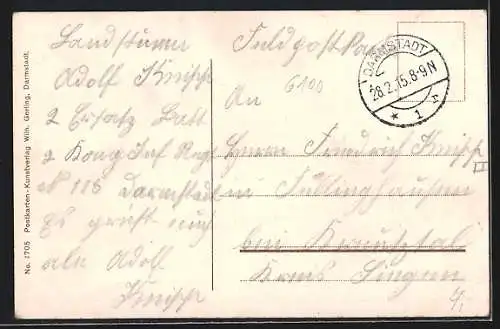 No. 1705 Postkarten-Kunstverlag Wilh. Gerling, Darmstadt.
Landsturm
Adolf Knipp
2 Ersatz Batl
2 Komp Inf Regt
No 118 Darmstadt
Es grüßt euch
alle Adolf
Knipp
Feldpostkarte
DARMSTADT
28.2.15.8-9N
* 1 *
An 6100
Herrn Friedrich Knipp
in
bei Kreuztal
Kreis Siegen